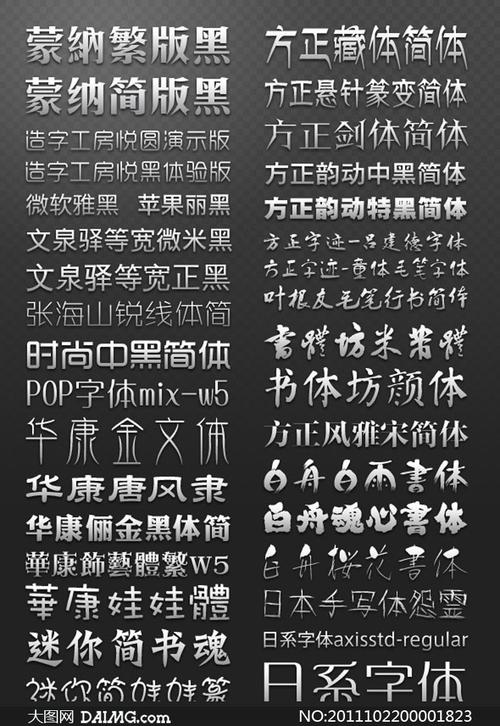 蒙納繁版黑
蒙纳简版黑
造字工房悦圆演示版
造字工房悦黑体验版
微软雅黑 苹果丽黑
文泉驿等宽微米黑
文泉驿等宽正黑
张海山锐线体简
时尚中黑简体
POP字体mix-w5
华康金文体
华康唐风隶
华康俪金黑体简
華康飾藝體繁W5
華康娃娃體
迷你简书魂
迷你简娃娃篆
方正藏体简体
方正悬针篆变简体
方正剑体简体
方正韵动中黑简体
方正韵动特黑简体
方正字迹-吕建德字体
方正字迹-童体毛笔字体
叶根友毛笔行书简体
書體坊米芾體
书体坊颜体
方正风雅宋简体
白舟白雨書体
白舟魂心書体
白舟桜花書体
日本手写体怨霊
日系字体axisstd-regular
日系字体
大图网 DAIMG.com
NO:2011102200001823